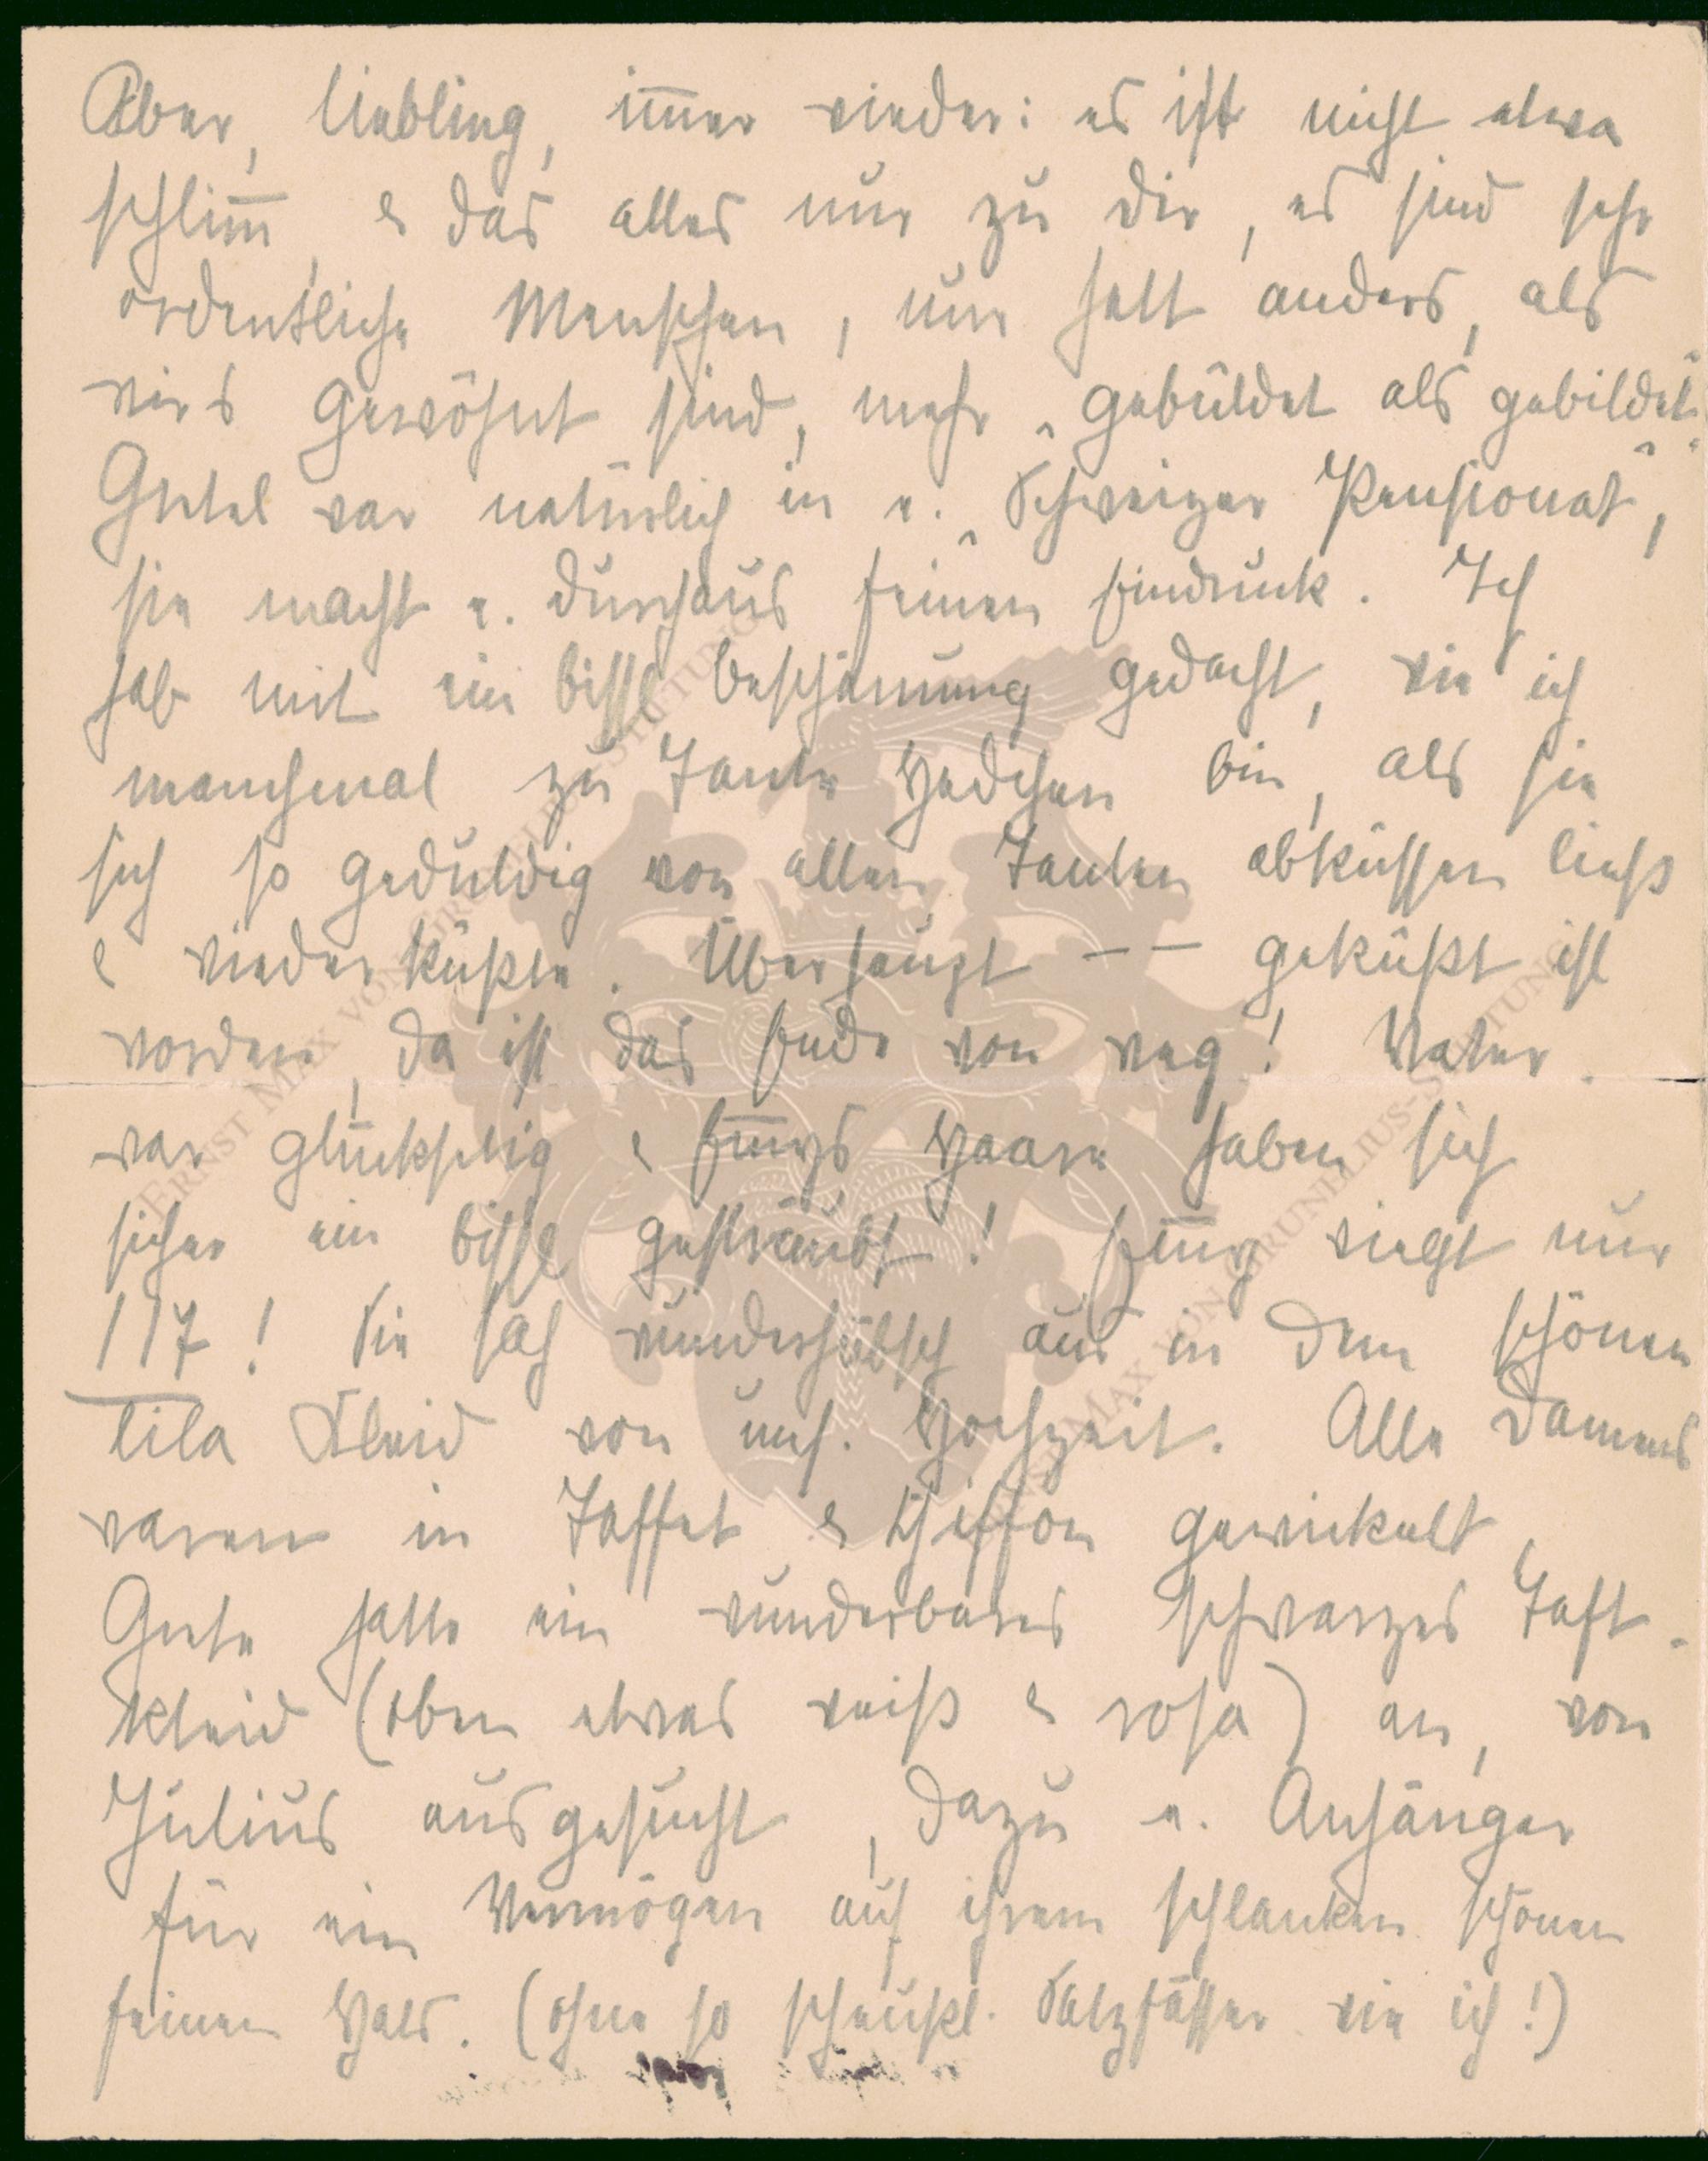 Aber, Liebling, im̅er wieder: es ist nicht etwa
schlim̅, & das alles nur zu Dir, es sind sehr
ordentliche Menschen, nur halt anders, als
wirs gewöhnt sind, mehr „gebüldet als gebildet“.
Gretel war natürlich in e. „Schweizer Pensionat“,
sie macht e. durchaus feinen Eindruck. Ich
hab mit ein bissl Beschämung gedacht, wie ich
manchmal zu Tante Hedchen bin, als sie
sich so geduldig von allen Tanten abküssen liess
& wiederküßte. Überhaupt -- geküßt ist
worden, da ist das Ende von weg! Vater
war glückselig & Em̅ys Haare haben sich
sicher ein bissl gesträubt! Em̅y wiegt nur
117! Sie sah wunderhübsch aus in dem schönen
lila Kleid von uns. Hochzeit. Alle Damens
waren in Taffet & Chiffon gewickelt,
Grete hatte ein wunderbares schwarzes Taft-
kleid (oben etwas weiß & rosa) an, von
Julius ausgesucht, dazu e. Anhänger
für ein Vermögen auf ihrem schlanken schönen
feinen Hals. (ohne so scheußl. Salzfässer wie ich!)
ERNST MAX VON GRUNELIUS-STIFTUNG
ERNST MAX VON GRUNELIUS-STIFTUNG